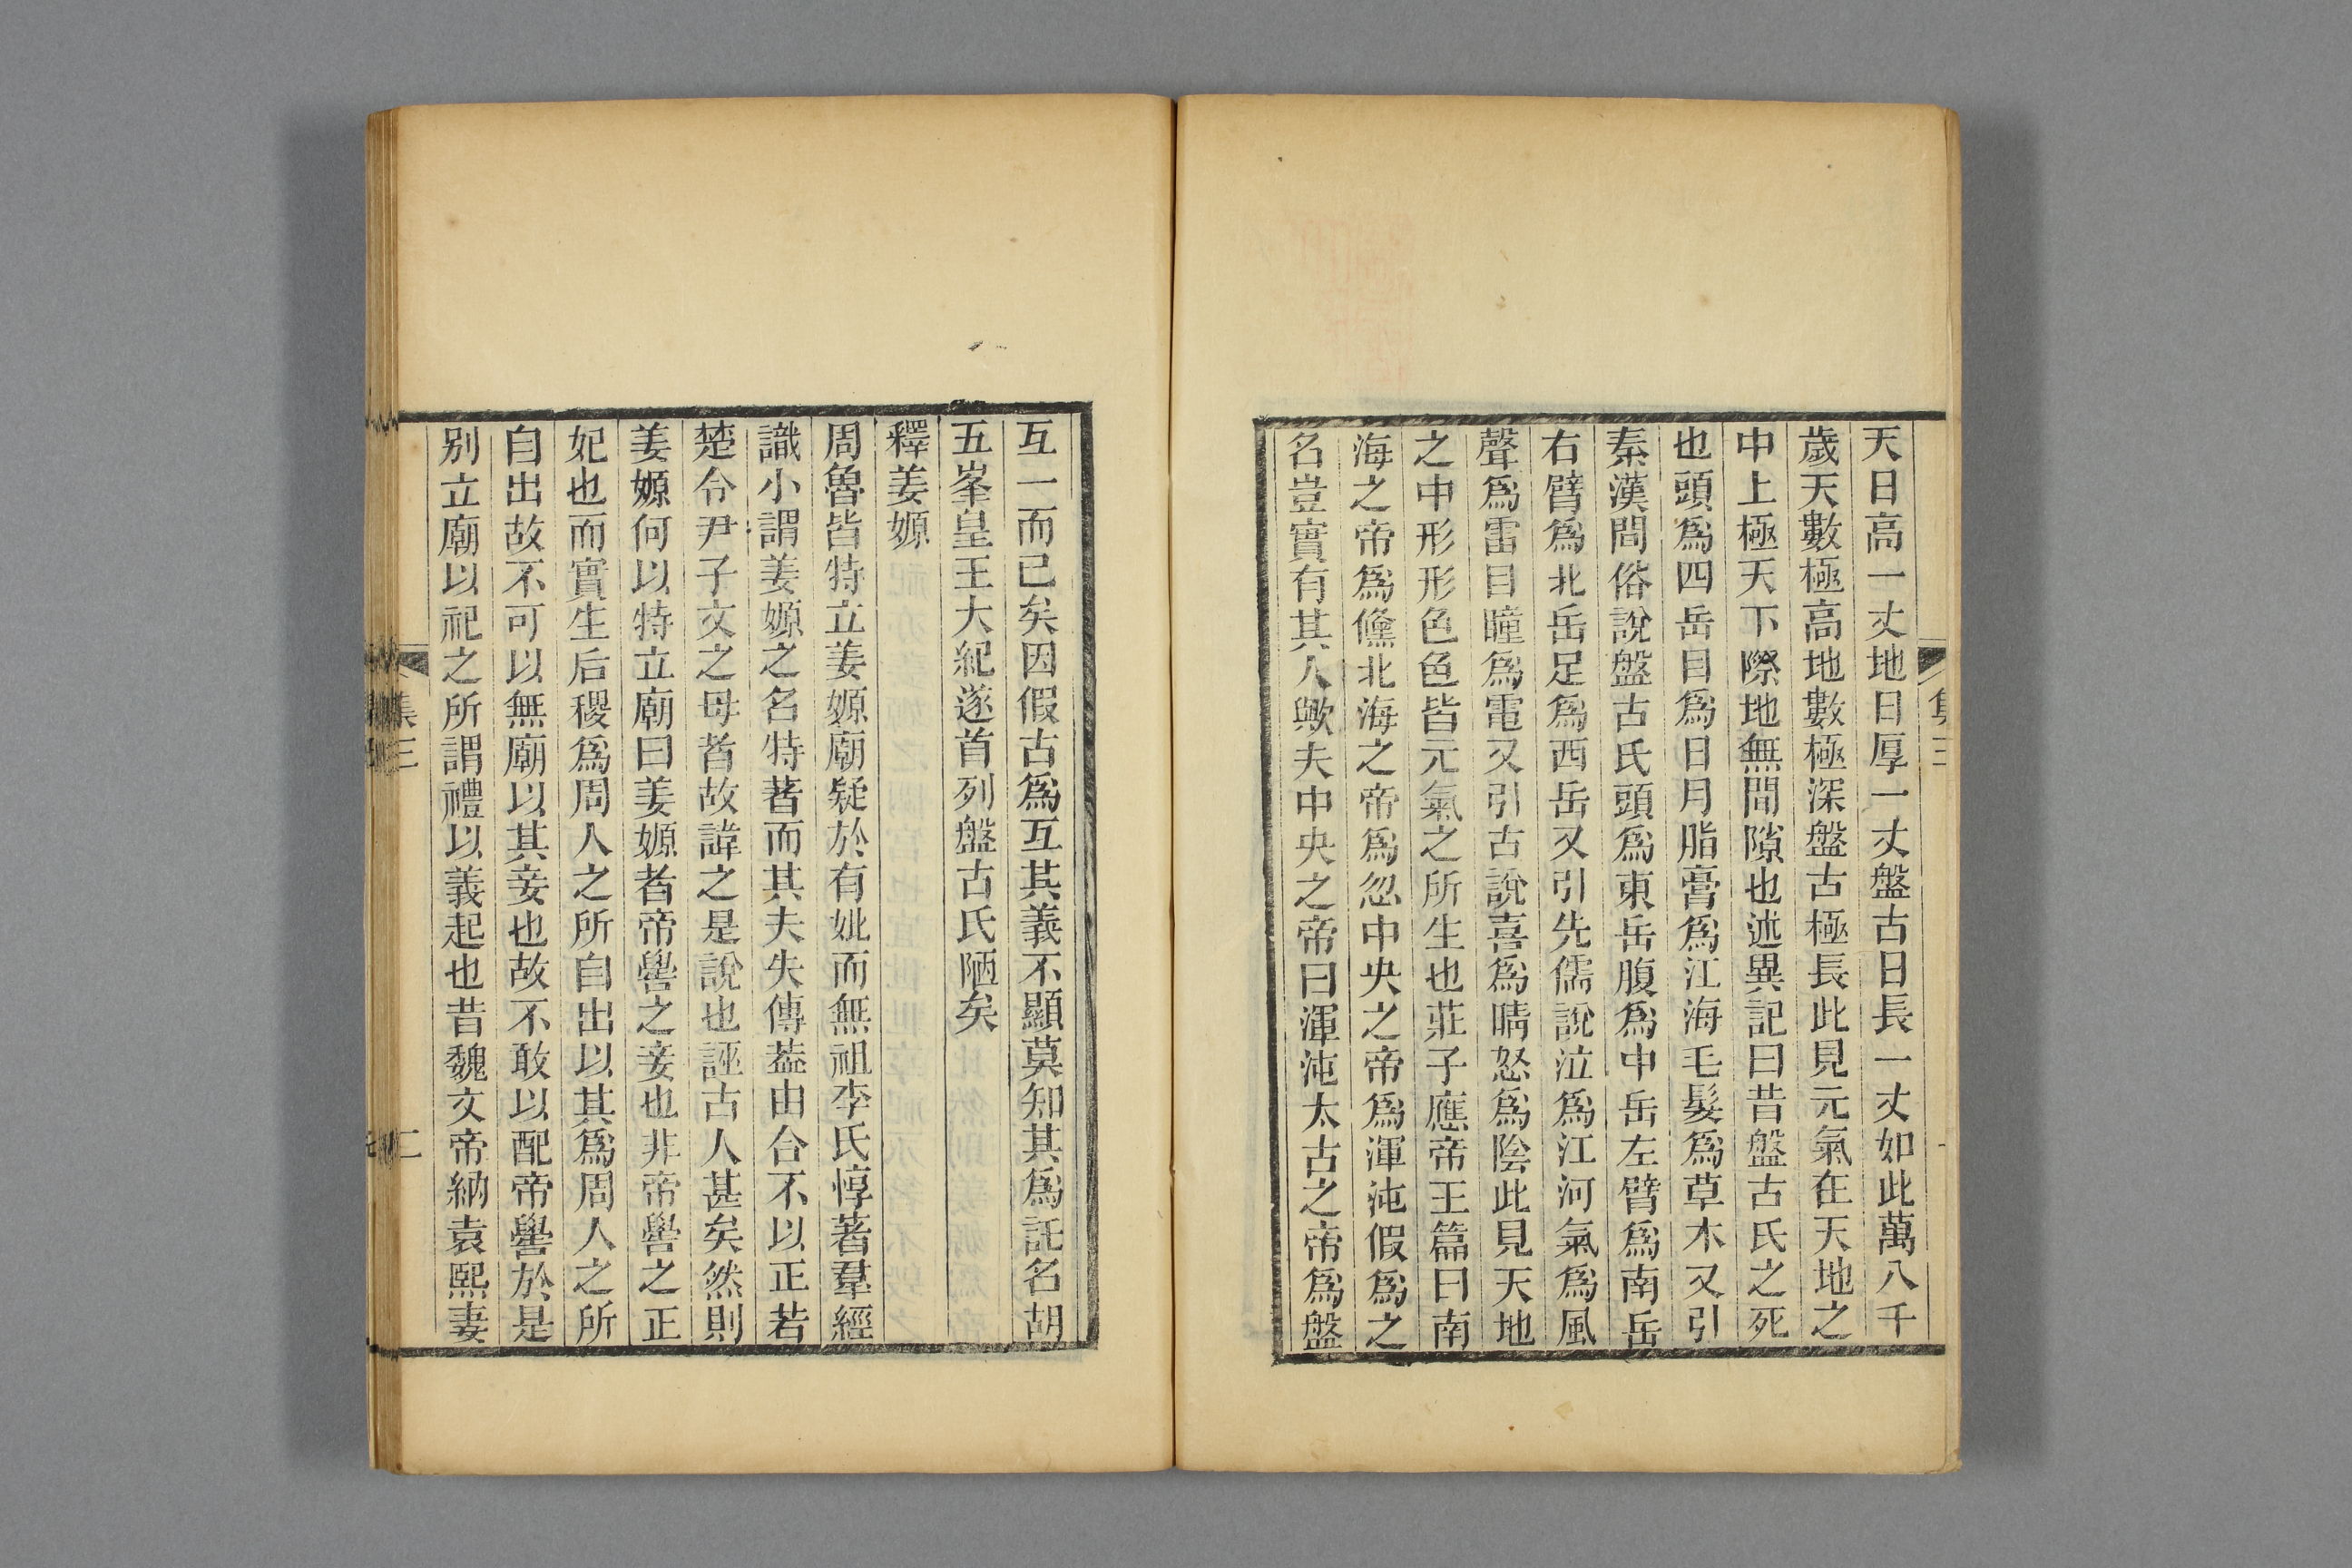 天日高一丈地日厚一丈盤古日長一丈如此萬八千
歲天數極高地數極深盤古極長此見元氣在天地之
中上極天下際地無間隙也述異記曰昔盤古氏之死
也頭爲四岳目爲日月脂膏爲江海毛髮爲草木又引
秦漢間俗說盤古氏頭爲東岳腹爲中岳左臂爲南岳
右臂爲北岳足爲西岳又引先儒說泣爲江河氣爲風
聲爲雷目瞳爲電又引古說喜爲晴怒爲陰此見天地
之中形形色色皆元氣之所生也莊子應帝王篇曰南
海之帝爲儵北海之帝爲忽中央之帝爲渾沌假爲之
名豈實有其人歟夫中央之帝曰渾沌太古之帝爲盤
集三
互一而已矣因假古爲互其義不顯莫知其爲託名胡
五峯皇王大紀遂首列盤古氏陋矣
釋姜嫄
周魯皆特立姜嫄廟疑於有妣而無祖李氏惇著羣經
識小謂姜嫄之名特著而其夫失傳葢由合不以正若
楚令尹子文之母者故諱之是說也誣古人甚矣然則
姜嫄何以特立廟曰姜嫄者帝嚳之妾也非帝嚳之正
妃也而實生后稷爲周人之所自出以其爲周人之所
自出故不可以無廟以其妾也故不敢以配帝嚳於是
别立廟以祀之所謂禮以義起也昔魏文帝納袁熙妻
集三
二